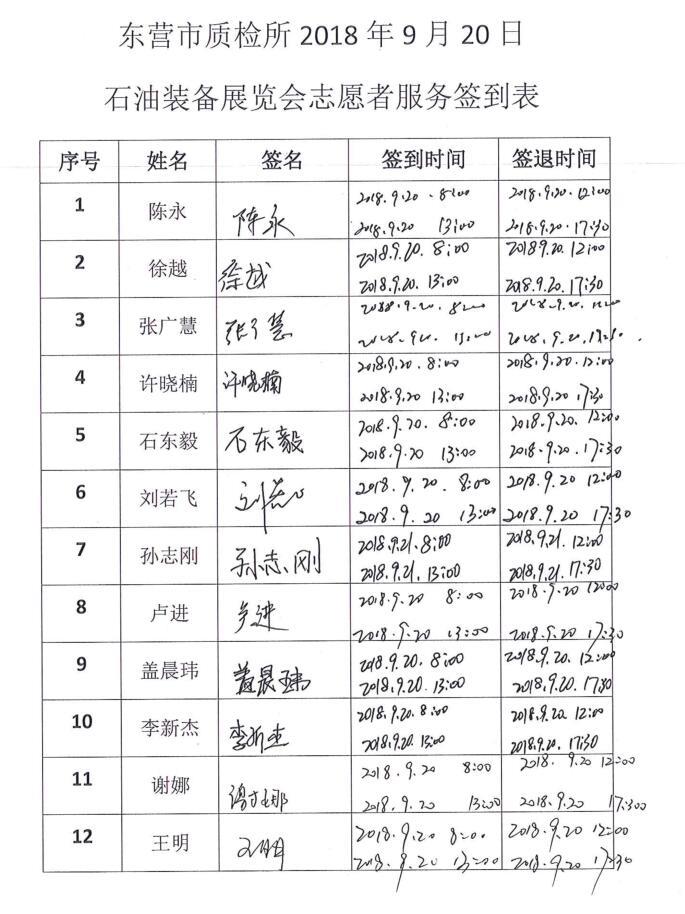 东营市质检所 2018 年 9 月 20 日
石油装备展览会志愿者服务签到表
序号 姓名 签名 签到时间 签退时间
1 陈永 陈永 2018.9.20 8:00 2018.9.20 12:00
2018.9.20 13:00 2018.9.20 17:30
2 徐越 徐越 2018.9.20. 8:00 2018.9.20. 12:00
2018.9.20. 13:00 2018.9.20. 17:30
3 张广慧 张广慧 2018.9.20. 8:00 2018.9.20. 12:00
2018.9.20. 13:00 2018.9.20. 17:30
4 许晓楠 许晓楠 2018.9.20. 8:00 2018.9.20. 12:00
2018.9.20 13:00 2018.9.20 17:30
5 石东毅 石东毅 2018.9.20. 8:00 2018.9.20. 12:00
2018.9.20 13:00 2018.9.20. 17:30
6 刘若飞 2018.9.20. 8:00 2018.9.20 12:00
2018.9.20 13:00 2018.9.20 17:30
7 孙志刚 孙志刚 2018.9.21. 8:00 2018.9.21. 12:00
2018.9.21. 13:00 2018.9.21. 17:30
8 卢进 卢进 2018.9.20 8:00 2018.9.20 12:00
2018.9.20 13:00 2018.9.20 17:30
9 盖晨玮 盖晨玮 2018.9.20. 8:00 2018.9.20. 12:00
2018.9.20. 13:00 2018.9.20. 17:30
10 李新杰 李新杰 2018.9.20. 8:00 2018.9.20. 12:00
2018.9.20. 13:00 2018.9.20. 17:30
11 谢娜 谢娜 2018.9.20 8:00 2018.9.20 12:00
2018.9.20 13:00 2018.9.20 17:300
12 王明 王明 2018.9.20 8:00 2018.9.20 12:00
2018.8.20 13:00 2018.9.20 17:30